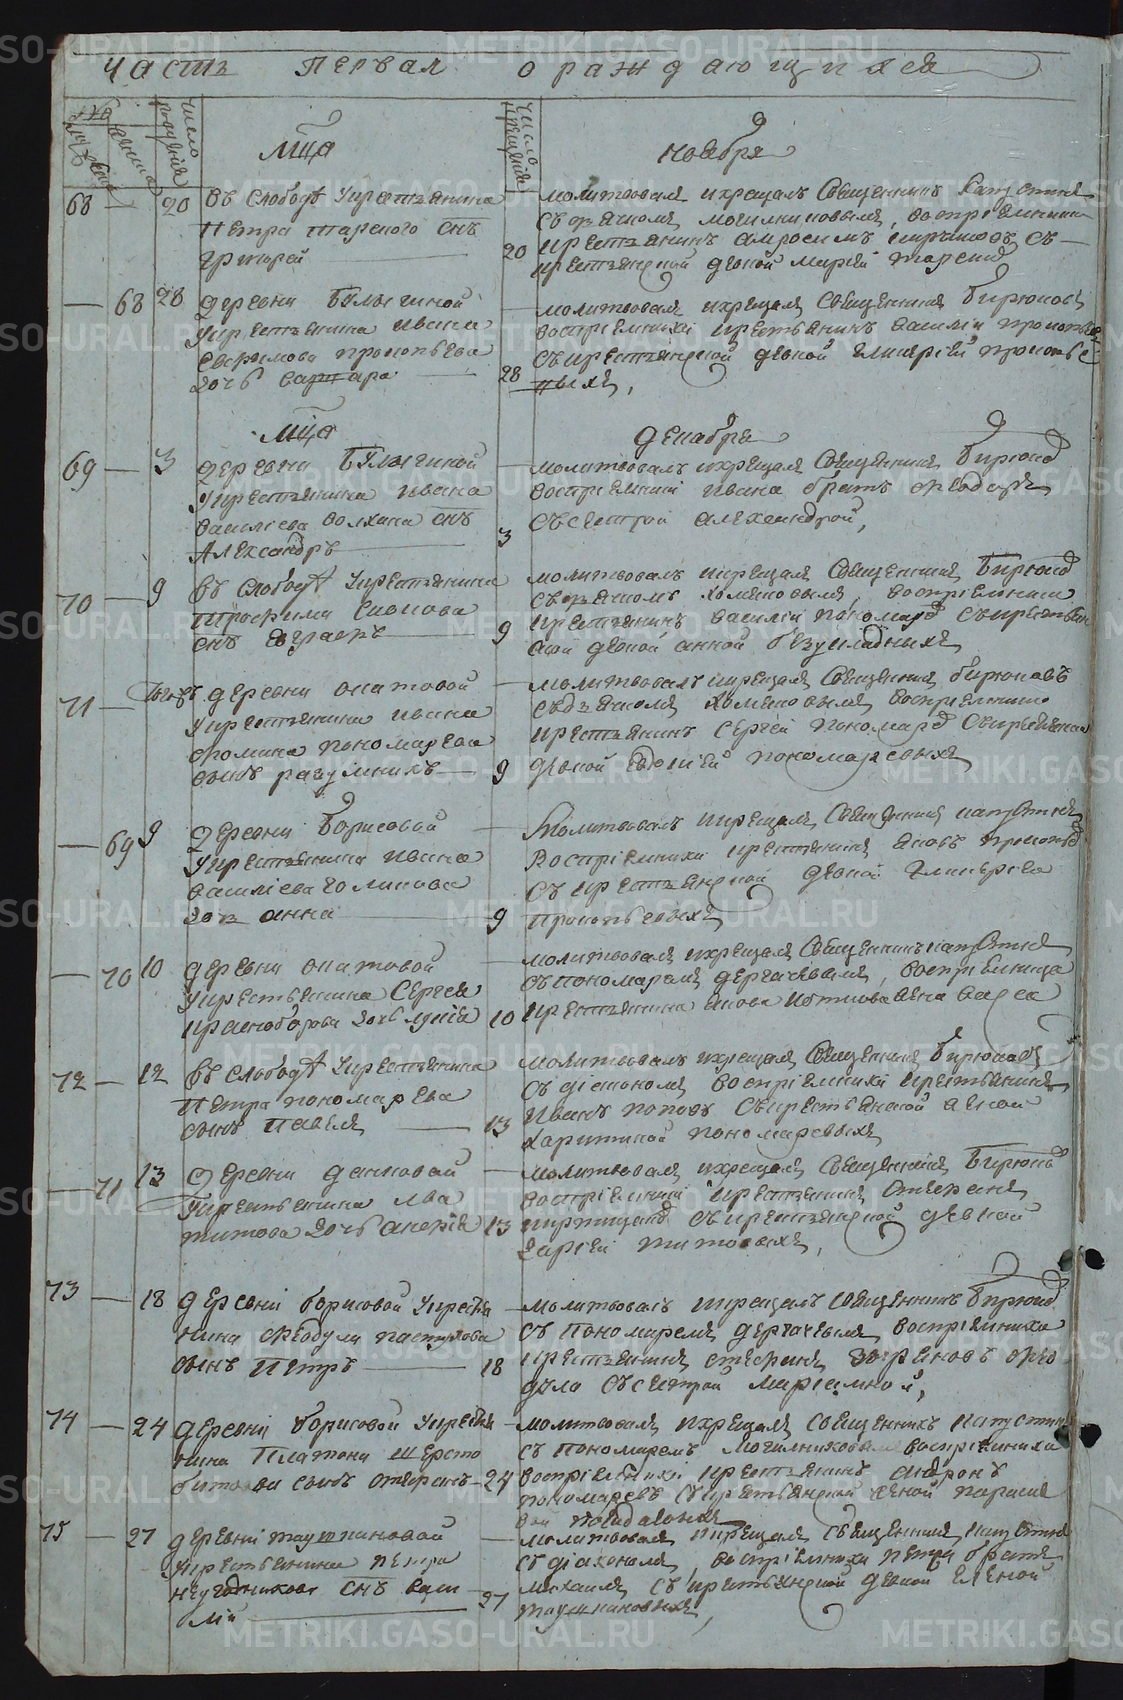 Часть первая о раждающихся
№
мужеска
женска
число рожденія
число крещенія
Мца
ноября
68 — 20
Въ слободѣ У крестьянина
Петра Тарского снъ
Григорей
20
молитвовалъ икрещалъ Священникъ Капустинъ
съ дьячкомъ могилниковымъ, воспріемники
крестьянинъ съ
крестьянской девкой Маріей
— 68 28
деревни Бѣлыгиной
У крестьянина Ивана
Ефимова прокопьева
дочь Варвара
28
молитвовалъ икрещалъ Священникъ Бирюковъ
воспріемники крестьянинъ Василій прокопьев
съ крестьянской девкой Гликеріей прокопье
выхъ,
Мца
декабря
69 — 3
деревни Бѣлыгиной
У крестьянина Ивана
Васильева Волкина снъ
Александръ
3
молитвовалъ икрещалъ Священникъ Бирюков
воспріемники Ивана братъ Феодоръ
съ сестрой Александрой,
70 — 9
Въ слободѣ У крестьянина
Трофима
снъ Евграфъ
9
молитвовалъ икрещалъ Священникъ Бирюков
съ дьячкомъ Хомяковымъ, воспріемники
крестьянинъ Василій пономарев съ крестьян
ской девкой Анной безукладныхъ
71 —
деревни Охатовой
У крестьянина Ивана
Фомина пономарева
сынъ разумникъ
9
молитвовалъ икрещалъ Священникъ Бирюковъ
съ дьячкомъ Хомяковымъ воспріемники
крестьянинъ Сергей пономарев съ крестьянской
девкой Евдокіей пономаревыхъ
— 69 9
деревни Борисовой
У крестьянина Ивана
Васильева Голикова
дочь Анна
9
Молитвовалъ икрещалъ Священникъ капустинъ
Воспріемники крестьянинъ Яковъ прокопьев
съ крестьянской девкой Гликеріей
Прокопьевыхъ
— 70 10
деревни Охатовой
У крестьянина Сергея
красноборова дочь Лукія
10
молитвовалъ икрещалъ Священникъ капустинъ
съ пономаремъ дергачевымъ, воспріемница
крестьянина Якова жена
72 — 12
Въ слободѣ У крестьянина
Петра пономарева
сынъ Павелъ
13
молитвовалъ икрещалъ Священникъ Бирюковъ
съ діакономъ воспріемники крестьянинъ
Иванъ поповъ съ крестьянской женой
Харитиной пономаревыхъ
— 71 13
деревни данковой
У крестьянина Льва
титова дочь Анфія
13
молитвовалъ икрещалъ Священникъ Бирюков
воспріемники крестьянинъ Стефанъ
съ крестьянской девкой
Дарьей титовыхъ,
73 — 18
деревни борисовой У крестья
нина Феодула пастухова
сынъ Петръ
18
молитвовалъ икрещалъ священникъ Бирюков
съ пономаремъ дергачевымъ воспріемники
крестьянинъ стефанъ Фео
дула съ сестрой Маріамной,
74 — 24
деревни борисовой У крестья
нина Платона шерсто
битова сынъ стефанъ
24
молитвовалъ икрещалъ священникъ капустин
съ пономаремъ Могилниковым воспріемники
воспріемники крестьянинъ Андронъ
пономаревъ съ крестьянской женой параске
вой
75 — 27
деревни таушкановой
У крестьянина петра
неугодникова снъ васи
лій
27
молитвовалъ икрещалъ священникъ капустин
съ діакономъ, воспріемники петра братъ
михаилъ, съ крестьянской девкой Еленой
таушкановыхъ,